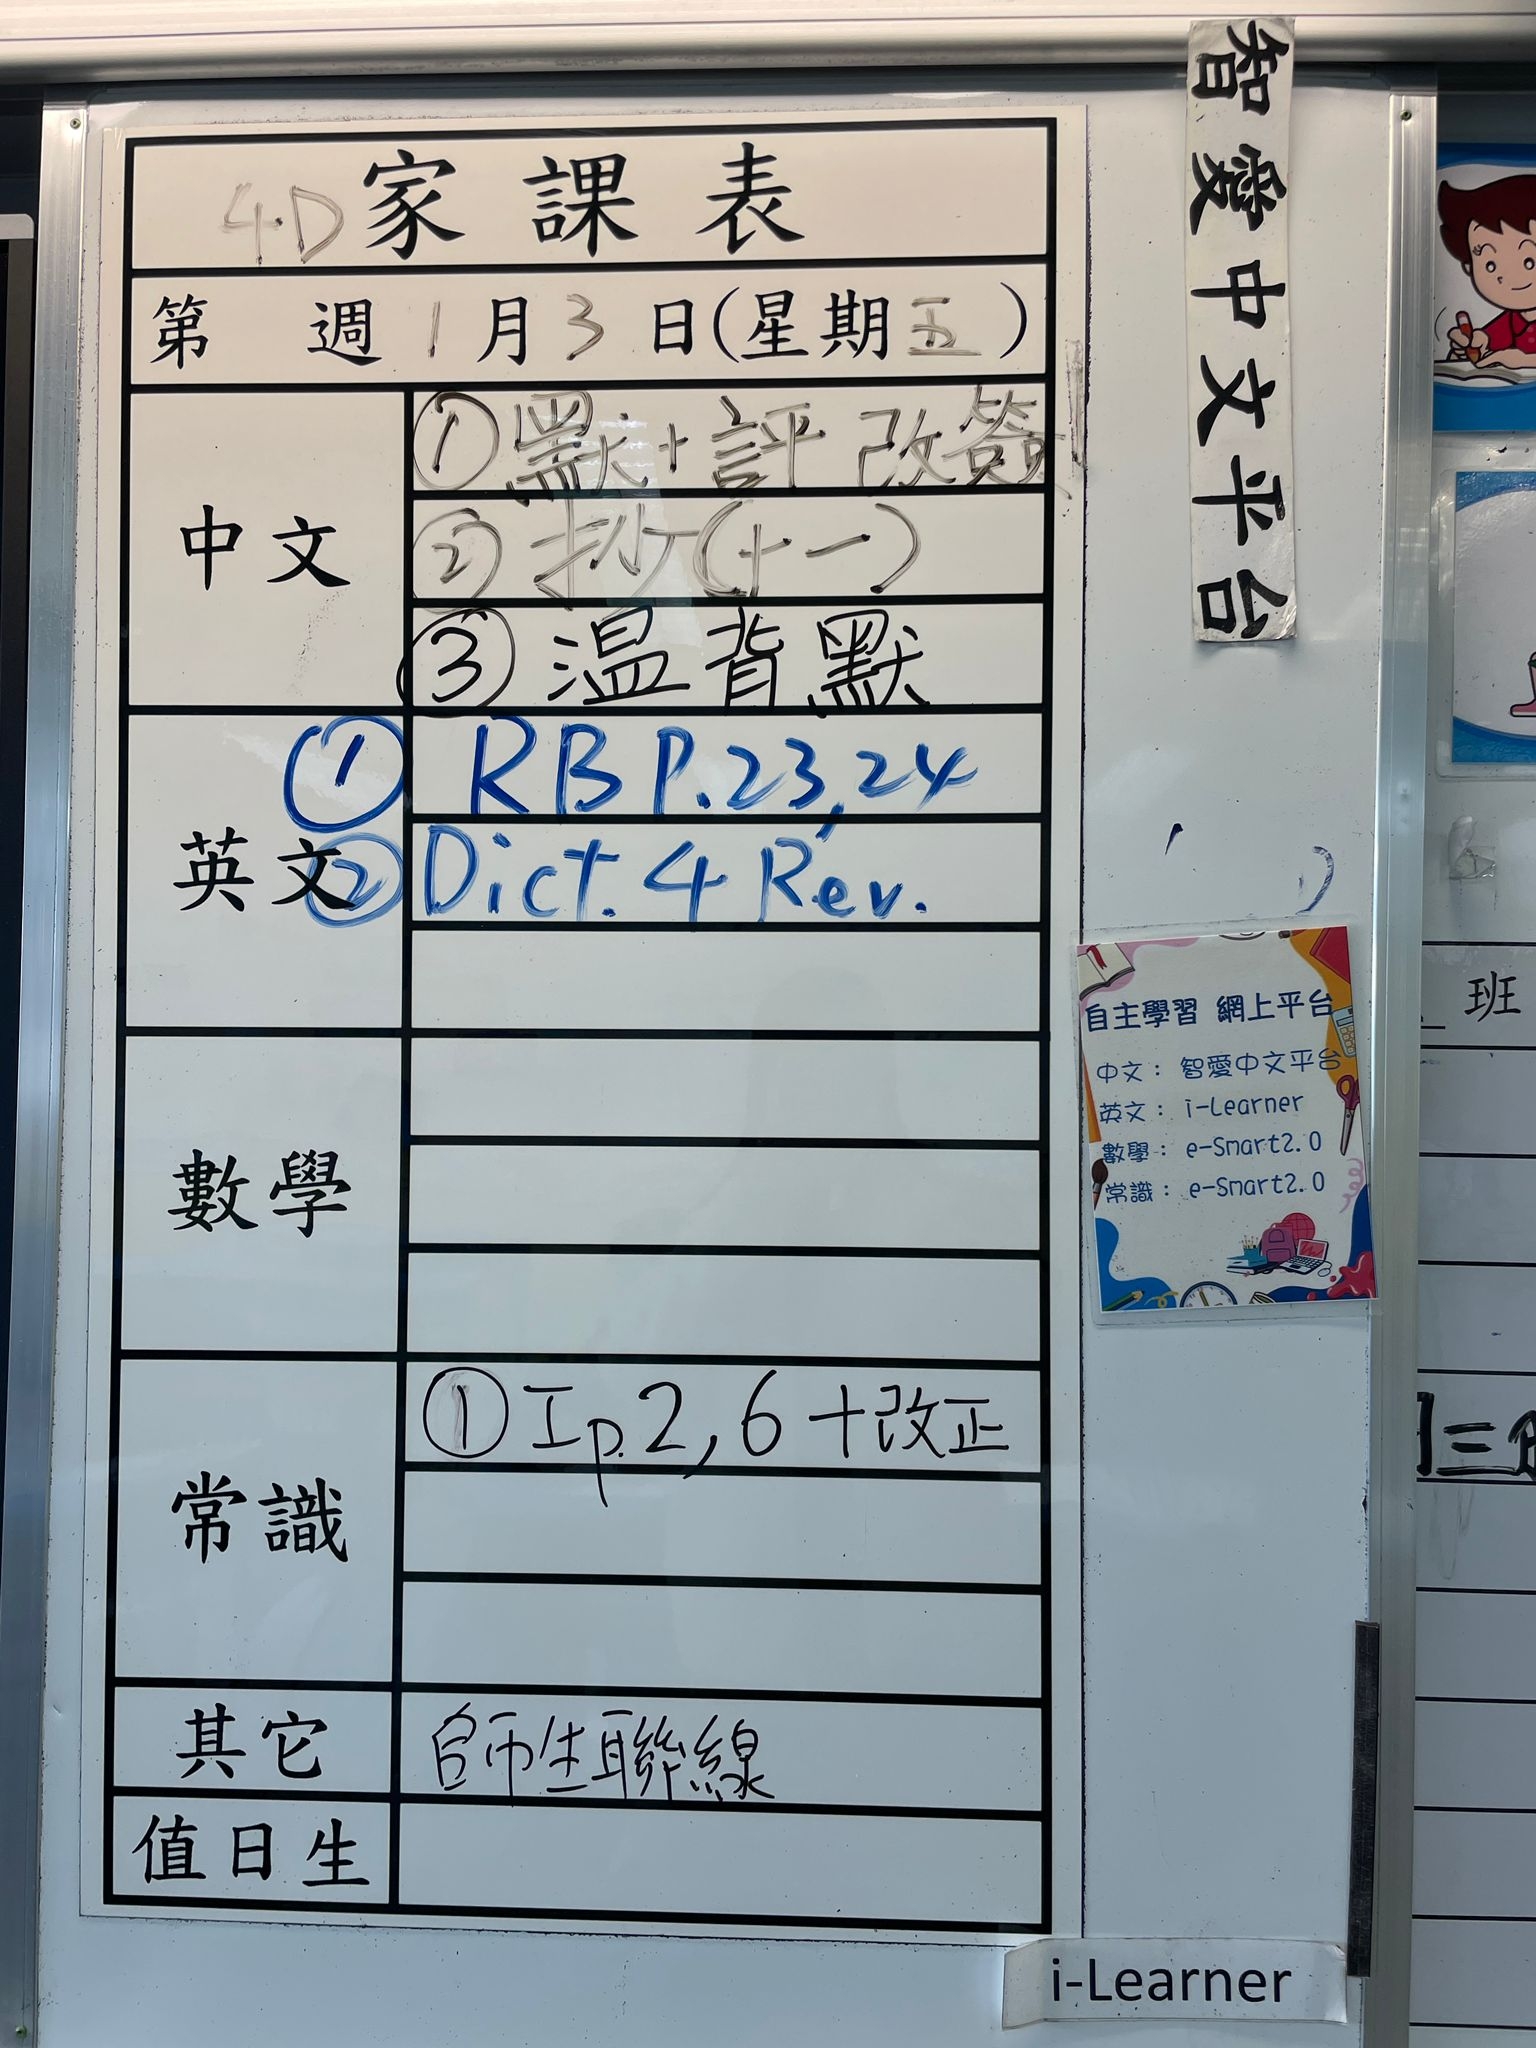 4.D 家課表
第 週 1 月 3 日(星期 五 )
中文
① 默+評 改簽
② 抄(十一)
③ 温背默
英文
① RB P.23,24
② Dict. 4 Rev.
數學
常識
① 工p.2,6+改正
其它
師生聯線
值日生
智愛中文平台
自主學習 網上平台
中文： 智愛中文平台
英文： i-Learner
數學： e-Smart2.0
常識： e-Smart2.0
i-Learner
班